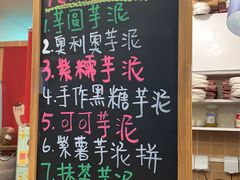 1.芋圓芋泥
2.奧利奧芋泥
3.紫糯芋泥
4.手作黑糖芋泥
5.可可芋泥
6.紫薯芋泥拼
7.抹茶芋泥